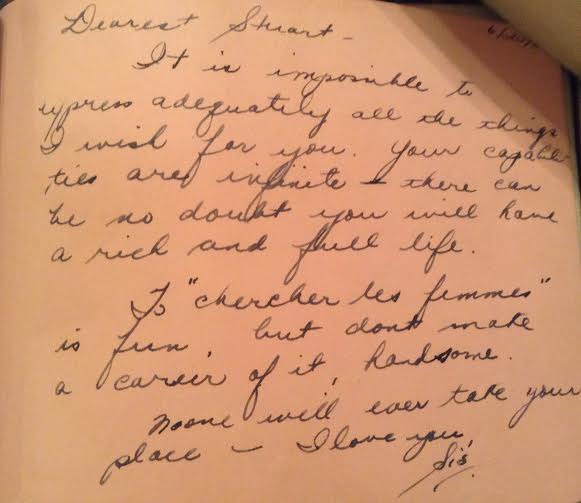 Dearest Stuart -
It is impossible to
express adequately all the things
I wish for you. Your capabili
ties are infinite - there can
be no doubt you will have
a rich and full life.
To "chercher les femmes"
is fun, but dont make
a career of it, handsome.
Noone will ever take your
place - I love you,
Sis.